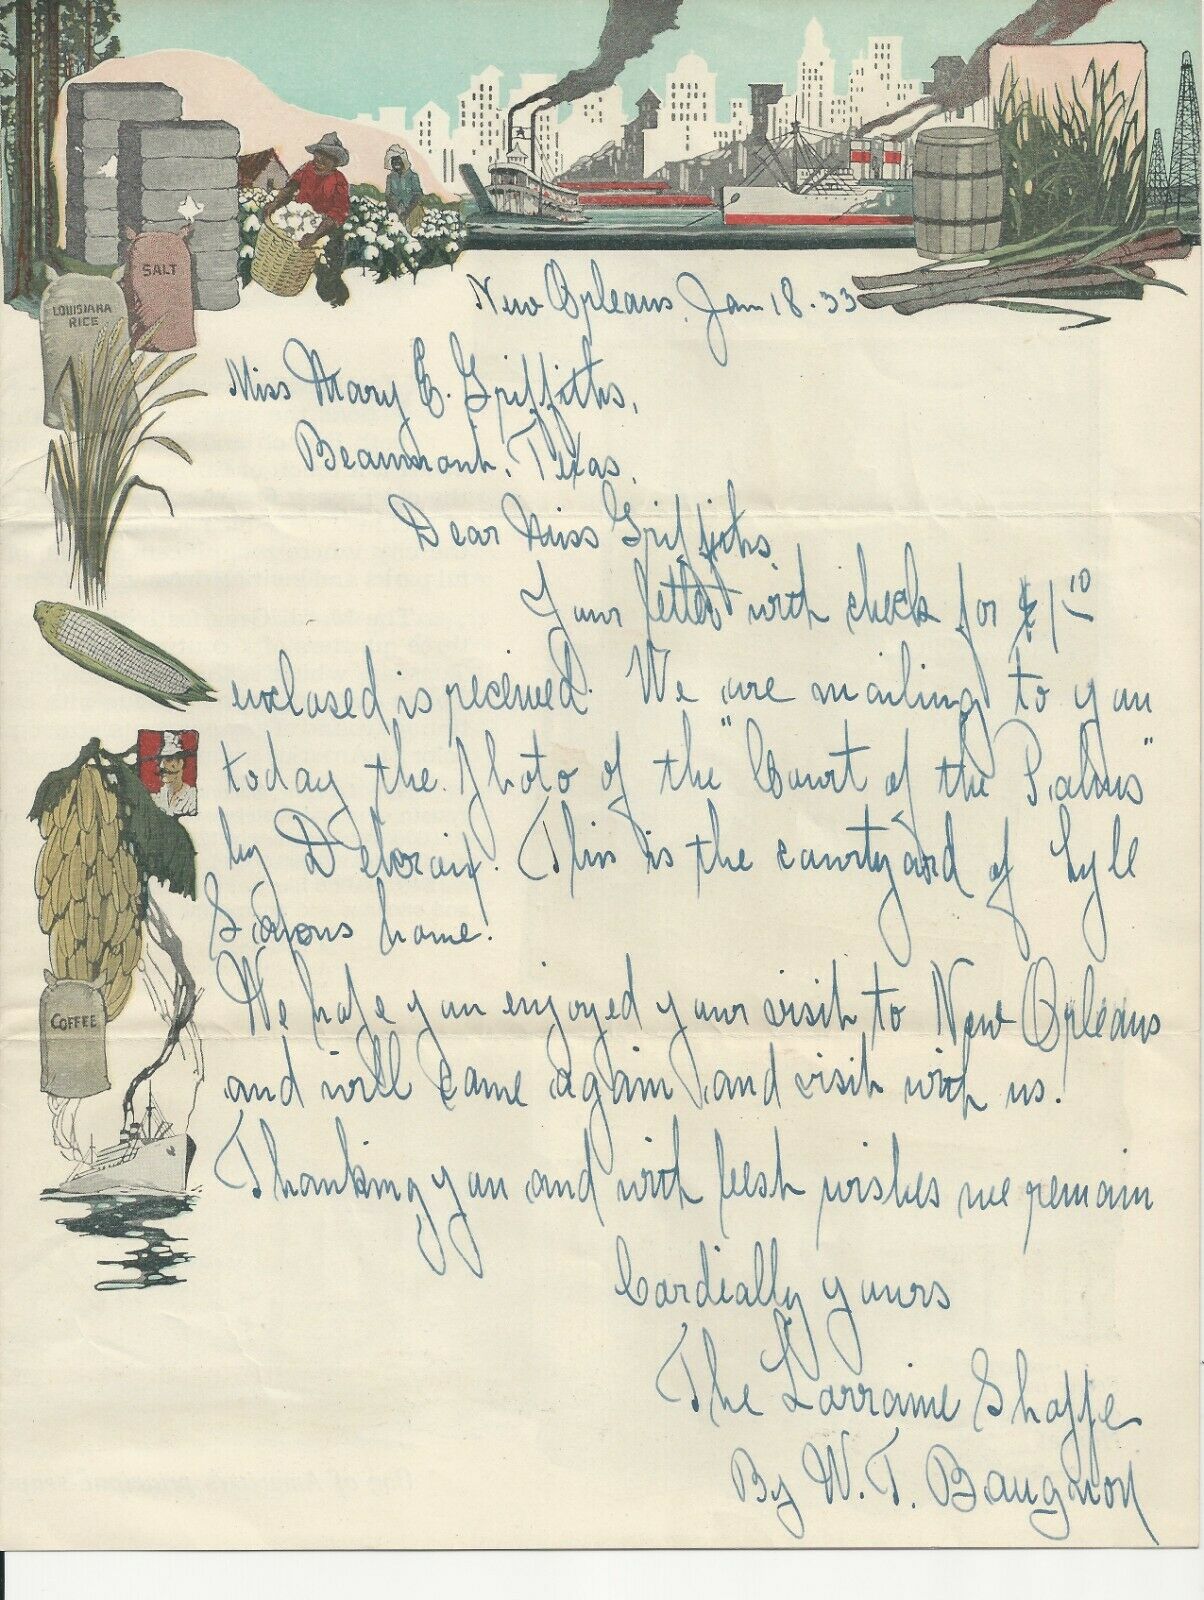 SALT
LOUISIANA
RICE
COFFEE
New Orleans, Jan 18-33
Miss Mary E. Griffiths,
Beaumont, Texas.
Dear Miss Griffiths
Your letter with check for $1.10
enclosed is received. We are mailing to you
today the photo of the "Court of the Palms"
by . This is the courtyard of Lyle
home.
We hope you enjoyed your visit to New Orleans
and will come again and visit with us.
Thanking you and with best wishes we remain
Cordially yours
The Lorraine Shoppe
By W. T.